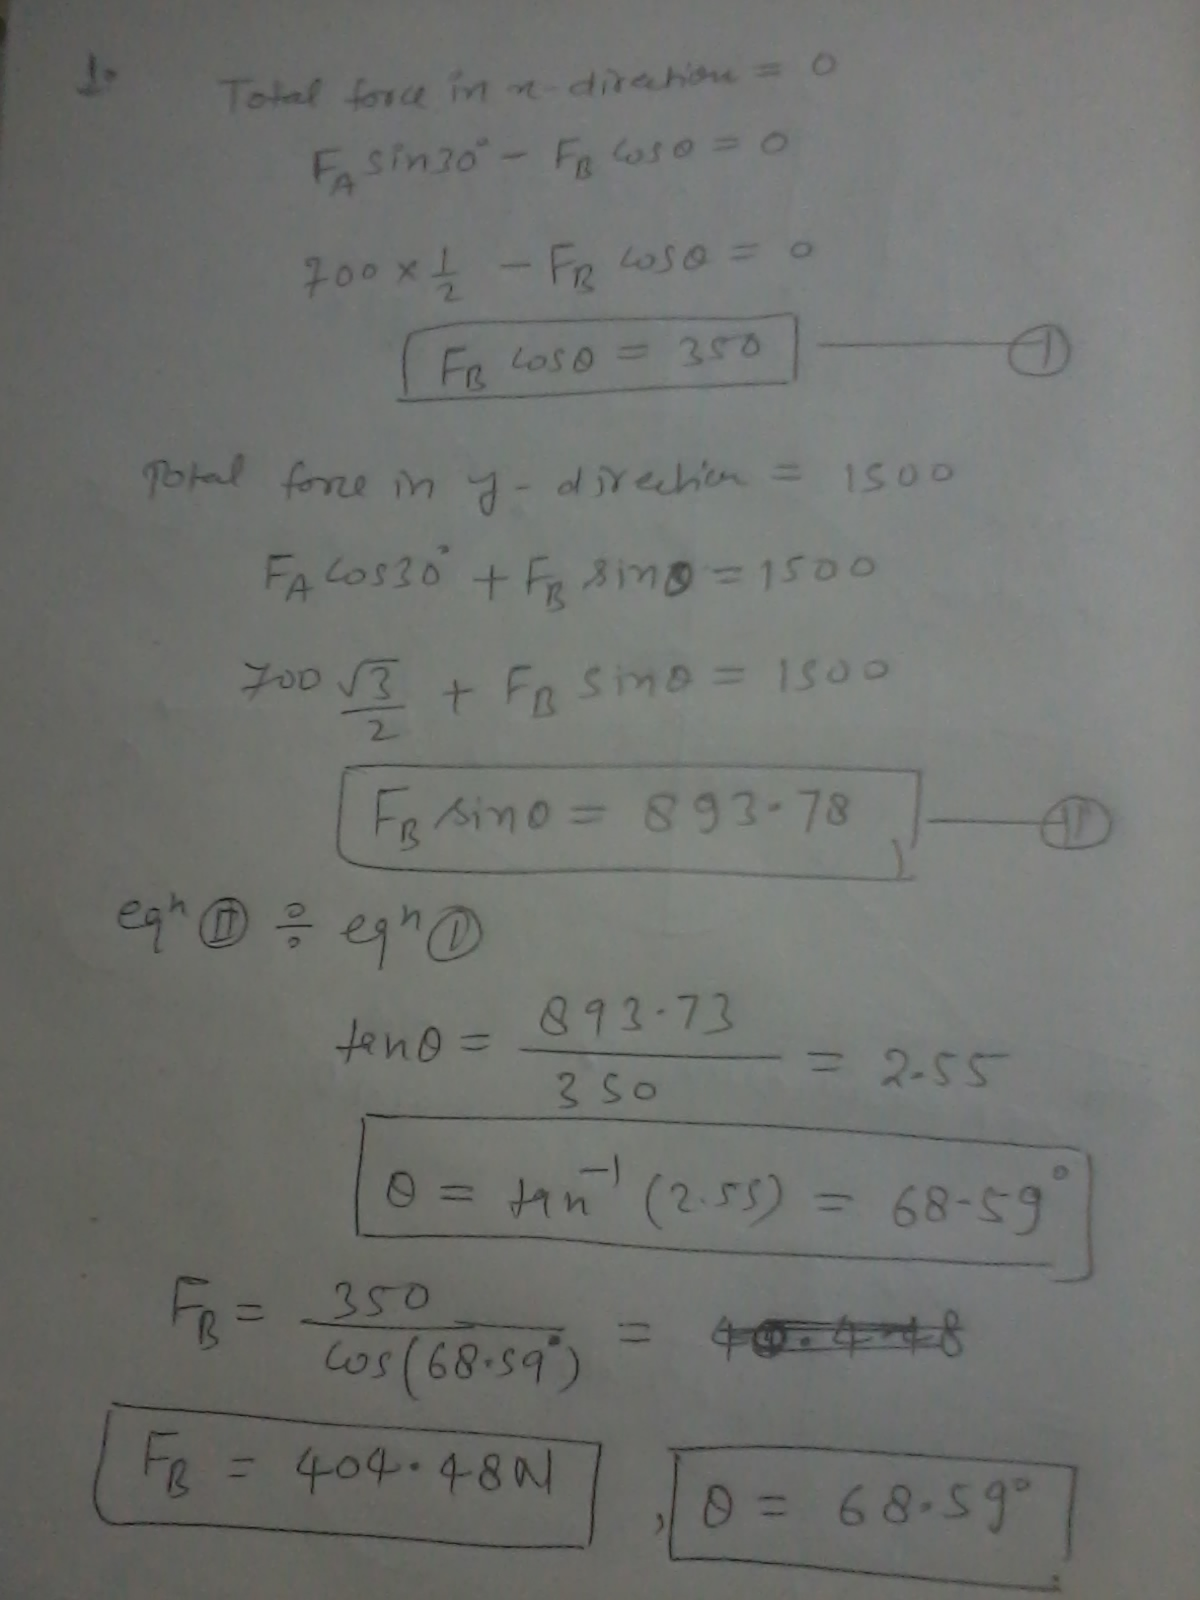 1.
Total force in x-direction = 0
F_A sin30° - F_B cosθ = 0
700 × 1/2 - F_B cosθ = 0
F_B cosθ = 350 —— Ⓘ
Total force in y-direction = 1500
F_A cos30° + F_B sinθ = 1500
700 √3/2 + F_B sinθ = 1500
F_B sinθ = 893.78 —— Ⓘⓘ
eqⁿ Ⓘⓘ ÷ eqⁿ Ⓘ
tanθ = 893.73/350 = 2.55
θ = tan⁻¹ (2.55) = 68.59°
F_B = 350/cos(68.59°) =
F_B = 404.48N , θ = 68.59°